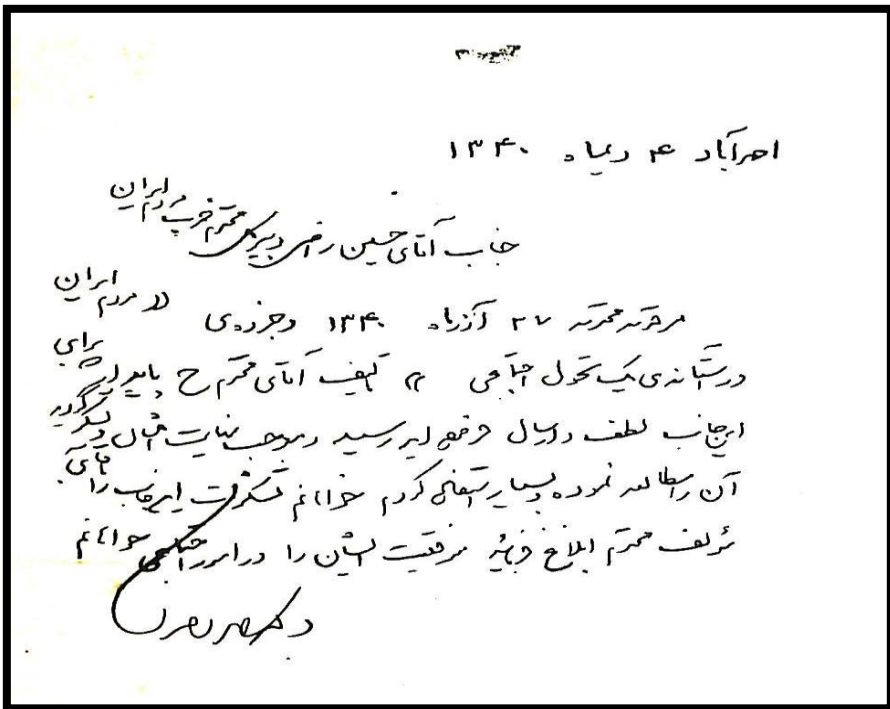 احمدآباد ۴ دیماه ۱۳۴۰
جناب آقای حسین راضی دبیر کل محترم حزب مردم ایران
مرقومه محترمه ۲۷ آذرماه ۱۳۴۰ و جزوه‌ی «مردم ایران
در آستانه‌ی یک تحول اجتماعی» تالیف آقای محترم ح پایدار برای
اینجانب لطف و ارسال فرموده‌اید رسید و موجب نهایت امتنان و تشکر گردید
آن را مطالعه نموده و بسیار استفاده کردم خواهانم تشکرات اینجانب را به آقای
مؤلف محترم ابلاغ فرمائید موفقیت ایشان را در امور اجتماعی خواهانم
دکتر محمد مصدق